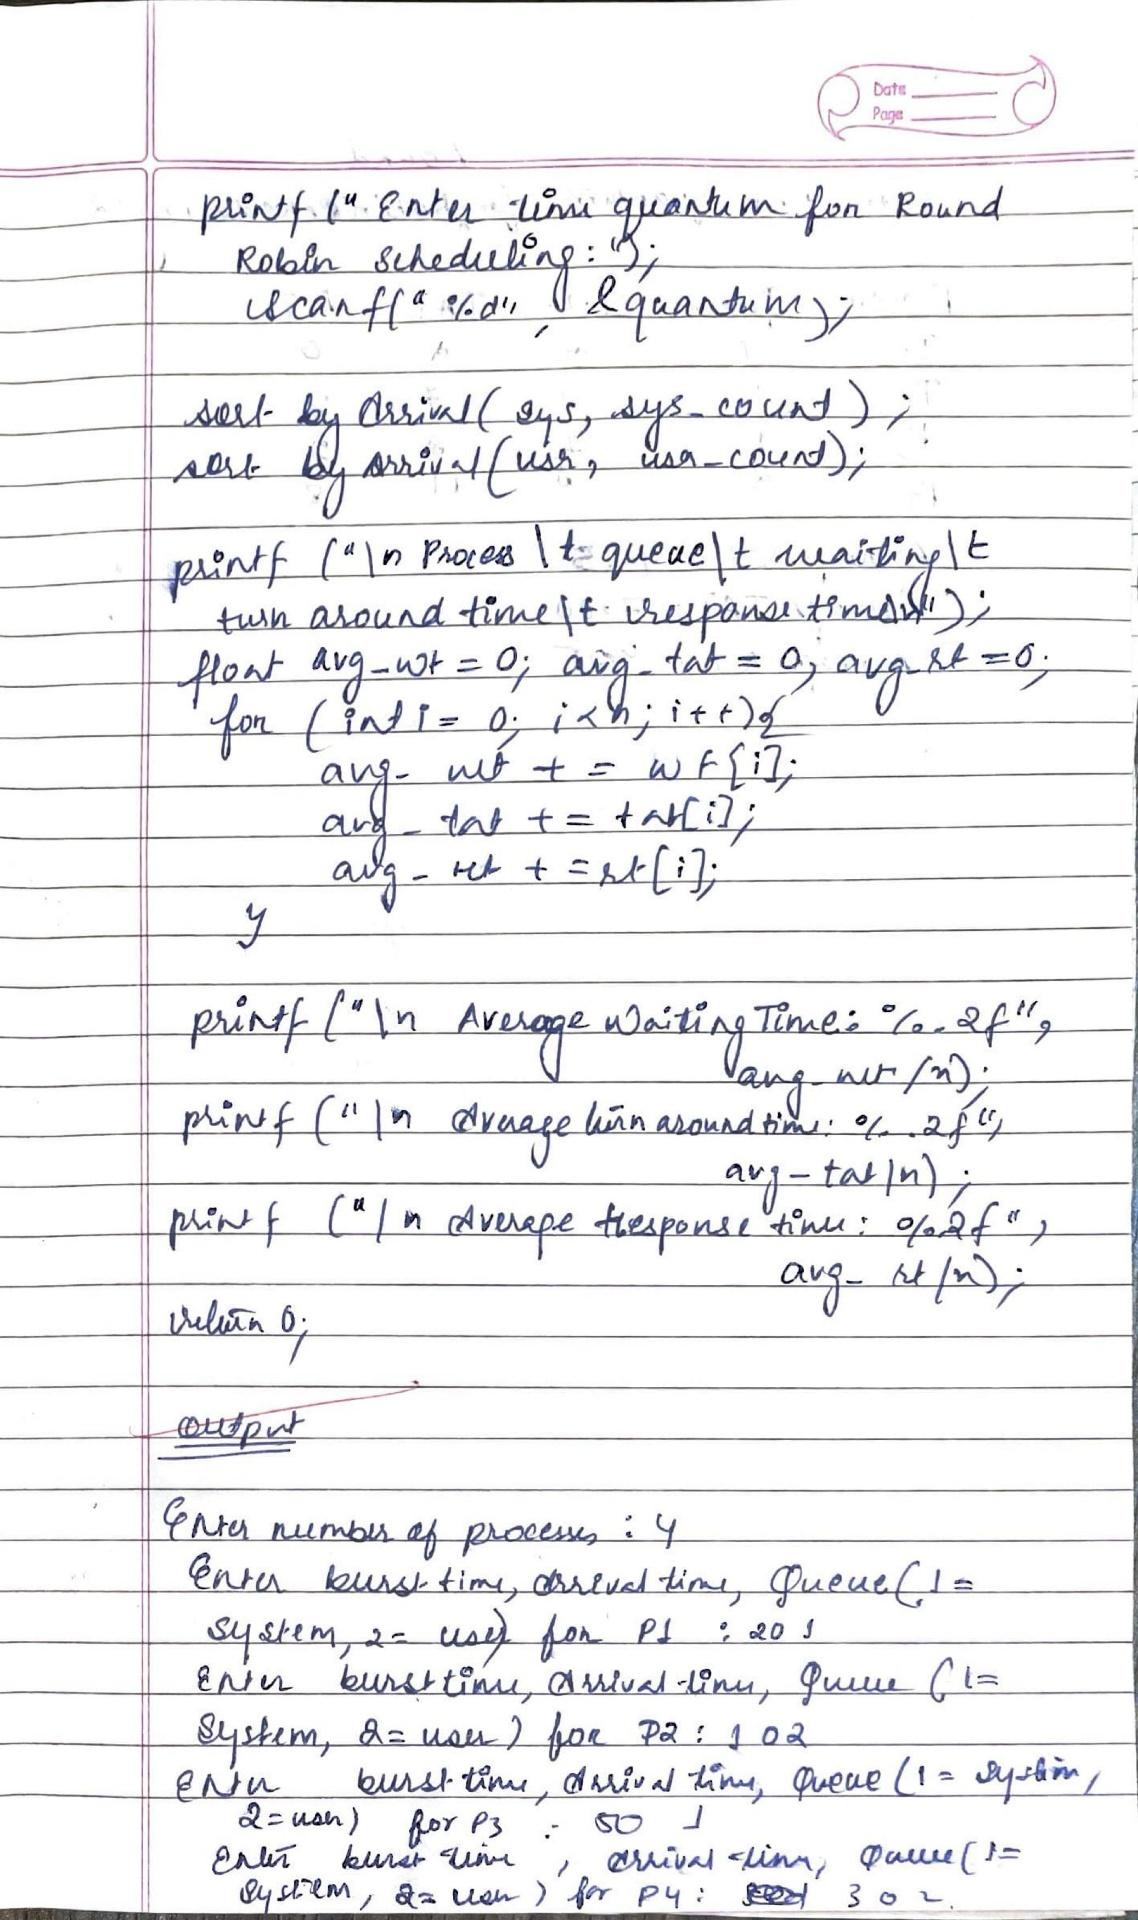 Date
Page
printf (" Enter time quantum for Round
Robin scheduling: ");
scanf(" %d", &quantum);
sort by Arrival( sys, sys_count ) ;
sort by arrival(usr, usr_count);
printf ("\n Process \t queue\t waiting\t
turn around time\t response time\n");
float avg_wt = 0; avg_tat = 0, avg_rt = 0;
for ( int i = 0; i<n; i++){
avg_ wt + = wt[i];
avg_ tat += tat[i];
avg_ rt + = rt[i];
}
printf ("\n Average Waiting Time: %.2f",
avg_wt /n);
printf ("\n Average turn around time: %.2f",
avg_tat/n) ;
printf ("\n Average Response time: %.2f",
avg_ rt /n);
return 0;
output
Enter number of processes : 4
Enter burst time, arrival time, Queue( 1 =
system, 2= user) for P1 : 20 1
Enter burst time, Arrival time, Queue ( 1=
System, 2= user ) for P2 : 1 0 2
Enter burst time, Arrival time, Queue (1 = System,
2=user) for P3 : 50 1
Enter burst time , arrival time, Queue( 1=
System, 2= user ) for P4 : 3 0 2.